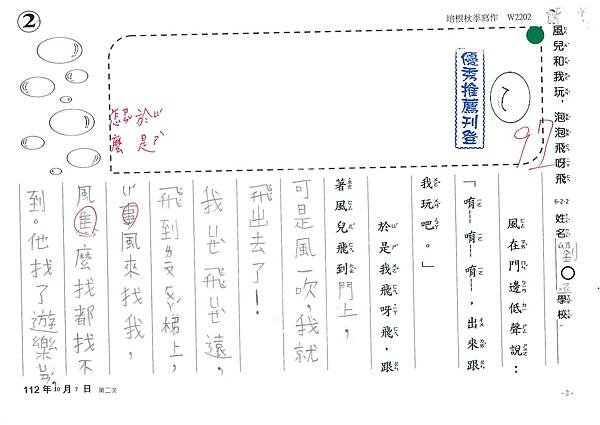 培根秋季寫作 W2202
②
風兒和我玩，泡泡飛呀飛
6-2-2 姓名 劉 學校
優秀推薦刊登
97
怎麼
於是
風在門邊低聲說：
「唷——唷——唷，出來跟
我玩吧。」
於是我飛呀飛，跟
著風兒飛到門上，
可是風一吹，我就
飛出去了！
我ㄩㄝ飛ㄩㄝ遠，
飛到ㄌㄡˊ梯上，
風來找我，
風 麼找都找不
到。他找了遊樂
112年10月7日 第二次
-2-